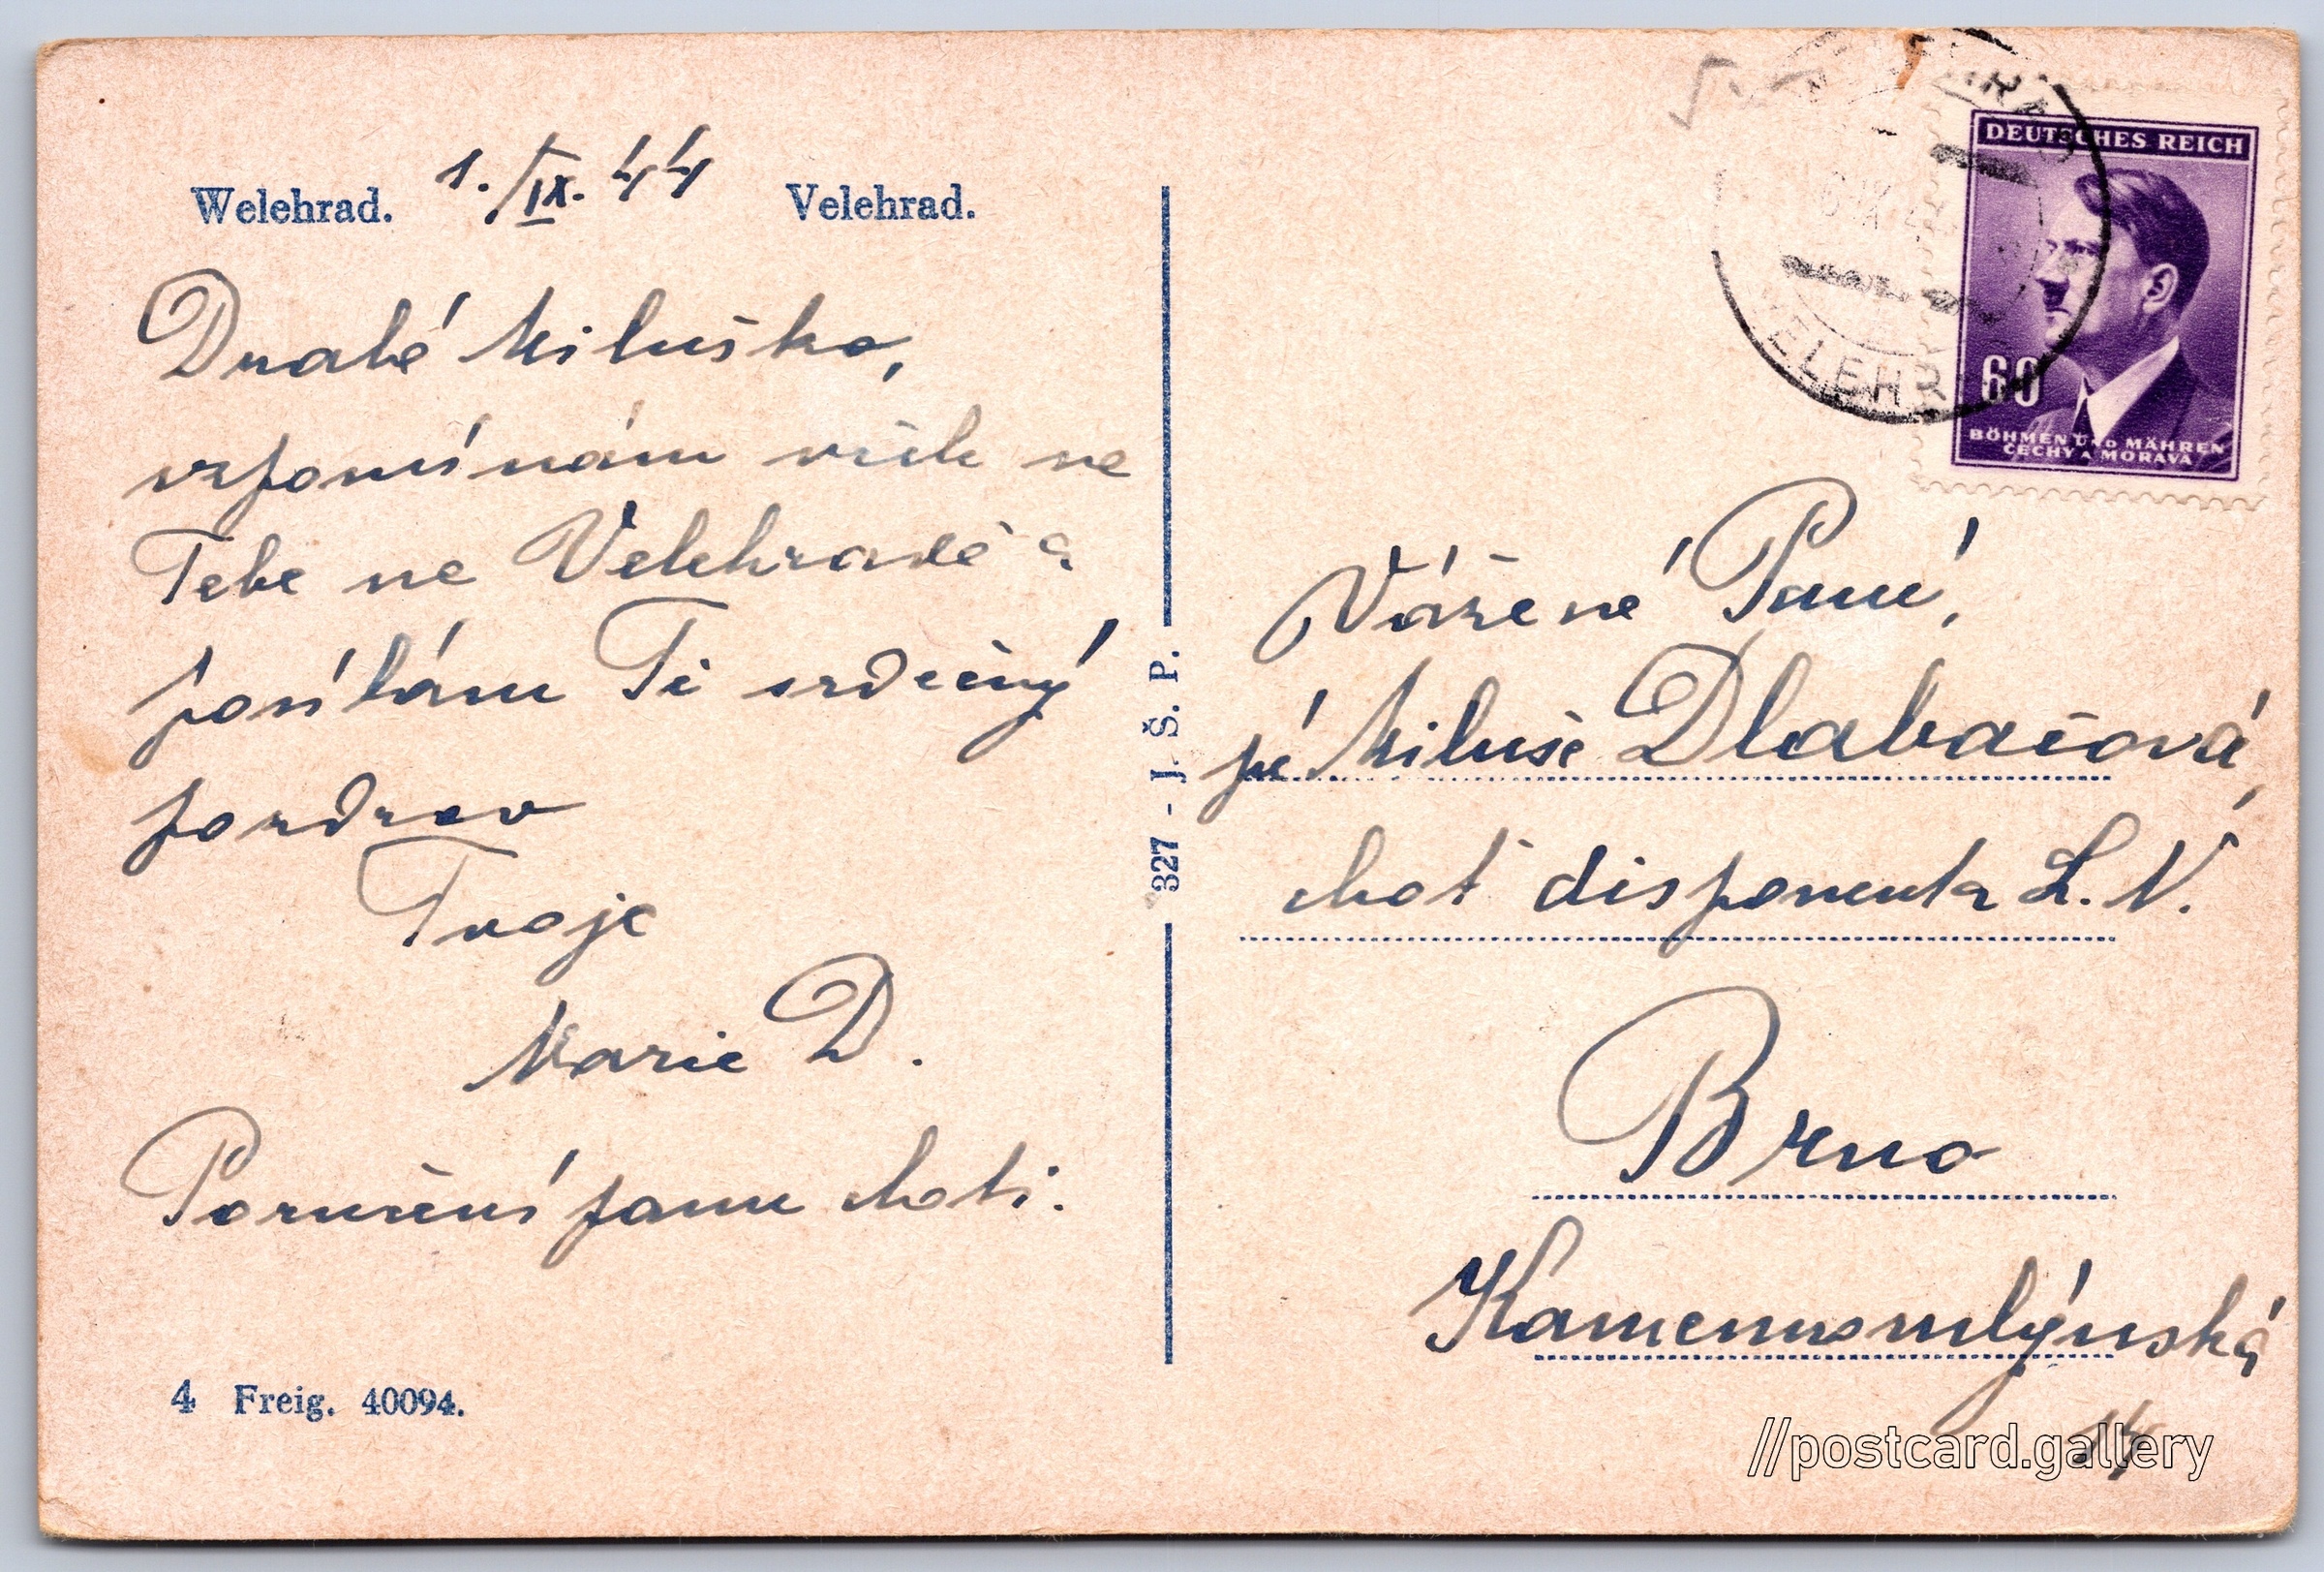 Welehrad. 1./IX. 44 Velehrad.
Drahá Miluško,
vzpomínám všech na
Tebe na Velehradě a
posílám Ti srdečný
pozdrav
Tvoje
Marie D.
Poručení panu choti.
4 Freig. 40094.
327 - J. Š. P.
DEUTSCHES REICH
60
BÖHMEN UND MÄHREN
ČECHY A MORAVA
VELEHR
Vážená Paní,
pí Miluše Dlabačová,
choť disponenta L. N.
Brno
Kamenomlýnská
14
//postcard.gallery